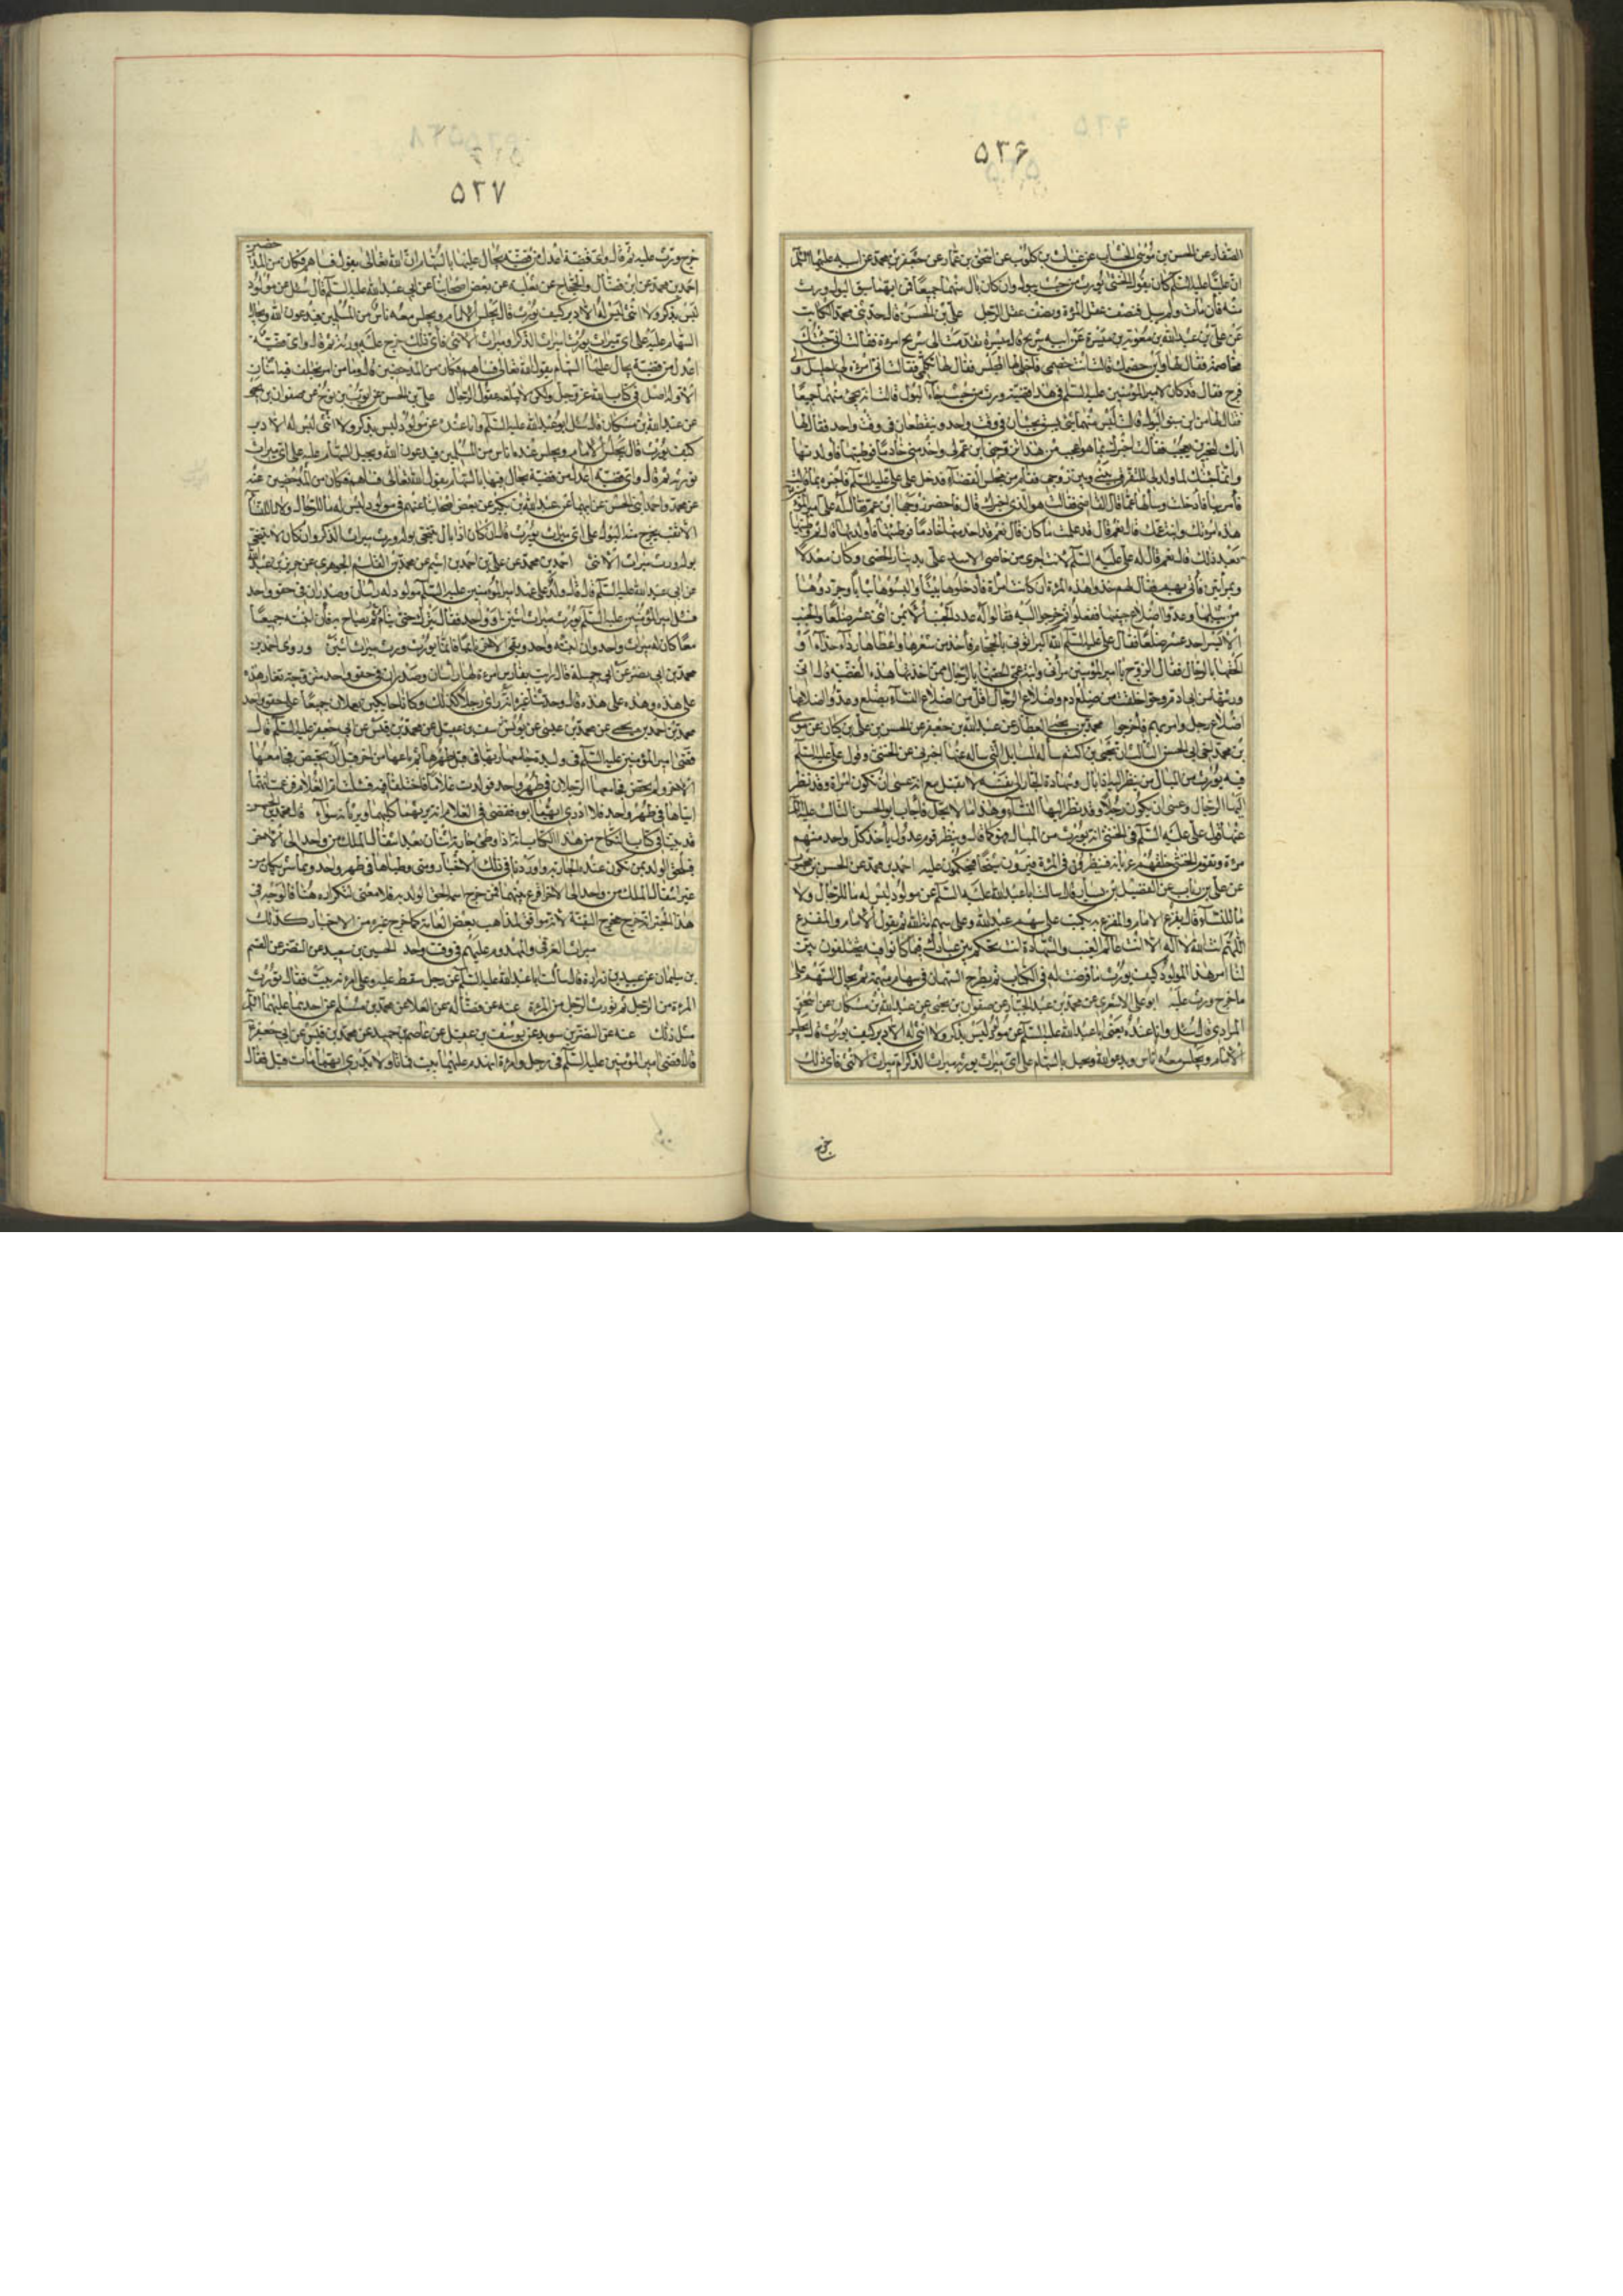 ۵۳۶
الصفار عن الحسن بن موسى الخشاب عن غياث بن كلوب عن اسحق بن عمار عن جعفر بن محمد عن ابيه عليهما السلم
ان عليا عليه السلم كان يقول الخنثى يورث من حيث يبول فان كان بال منهما جميعا فمن ايهما سبق البول ورث
منه فان مات ولم يبل فنصف عقل المرة ونصف عقل الرجل علي بن الحسن قال حدثني محمد الكاتب
عن علي بن عبد الله بن معوية بن ميسرة عن ابيه شريح قال ميسرة تقدمت الى شريح امرة فقالت اني جئتك
مخاصمة فقال لها واين خصمك قالت انت خصمي فاخلى لها المجلس فقال لها تكلمي فقالت اني امرة لي احليل ولي
فرج فقال قد كان لامير المؤمنين عليه السلم في هذا قضية ورث من حيث جاء البول قالت انه يجئ منهما جميعا
فقال لها من اين سبق البول قالت ليس منهما شئ يسبق يجيئان في وقت واحد وينقطعان في وقت واحد فقال لها
انك لتخبرين بعجب فقالت اخبرك بما هو اعجب من هذا تزوجني ابن عم لي واخدمني خادما فوطئتها فاولدتها
وانما جئتك لما ولد لي لتفرق بيني وبين زوجي فقام من مجلس القضاء فدخل على علي عليه السلم فاخبره بما قالت
فامر بها فادخلت وسألها عما قال القاضي فقالت هو الذي اخبرك قال فاحضر زوجها ابن عمها فقال له علي امير المؤمنين
هذه امرتك وابنة عمك قال نعم قال قد علمت ما كان قال نعم قد اخدمتها خادما فوطئتها فاولدتها قال ثم وطئتها
بعد ذلك قال نعم قال له علي عليه السلم لانت اجرى من خاصي الاسد علي بدينار الخصي وكان معدلا
وبمرأتين فأتي بهم فقال لهم خذوا هذه المرة ان كانت امرأة فادخلوها بيتا والبسوها ثيابا وجردوها
من ثيابها وعدوا اضلاع جنبيها ففعلوا ثم خرجوا اليه فقالوا له عدد الجنب الايمن اثني عشر ضلعا والجنب
الايسر احد عشر ضلعا فقال علي عليه السلم الله اكبر ايتوني بالحجام فاخذ من شعرها واعطاها رداء وحذاء و
الحقها بالرجال فقال الزوج يا امير المؤمنين امرأتي وابنة عمي الحقتها بالرجال ممن اخذت هذه القضية قال اني
ورثتها من ابي ادم وحوا خلقت من ضلع ادم واضلاع الرجال اقل من اضلاع النساء بضلع وعدة اضلاعها
اضلاع رجل وامر بهم فاخرجوا محمد بن يحيى العطار عن عبد الله بن جعفر عن الحسن بن علي بن كيسان عن موسى
بن محمد اخي ابي الحسن الثالث ان يحيى بن اكثم سأله في المسائل التي سأله عنها اخبرني عن الخنثى وقول علي عليه السلم
فيه يورث من المبال من ينظر اليه اذا بال وشهادة الجار لنفسه لا تقبل مع انه عسى ان تكون امرأة وقد نظر
اليها الرجال وعسى ان يكون رجلا وقد نظر اليها النساء وهذا ما لا يحل فاجاب ابو الحسن الثالث عليه السلم
عنها قول علي عليه السلم في الخنثى انه يورث من المبال فهو كما قال وينظر قوم عدول يأخذ كل واحد منهم
مرة وتقوم الخنثى خلفهم عريانة فينظرون في المرة فيرون شبحا فيحكمون عليه احمد بن محمد عن الحسن بن محبوب
عن علي بن رئاب عن الفضيل بن يسار قال سالت ابا عبد الله عليه السلم عن مولود ليس له ما للرجال ولا
ما للنساء قال يقرع الامام او المقرع به يكتب على سهم عبد الله وعلى سهم امة الله ثم يقول الامام او المقرع
اللهم انت الله لا اله الا انت عالم الغيب والشهادة انت تحكم بين عبادك فيما كانوا فيه يختلفون بين
لنا امر هذا المولود كيف يورث ما فرضت له في الكتاب ثم يطرح السهمان في سهام مبهمة ثم يجال السهم على
ما خرج ورث عليه ابو علي الاشعري عن محمد بن عبد الجبار عن صفوان بن يحيى عن عبد الله بن مسكان عن اسحق
المرادي قال سئل وانا عنده يعني ابا عبد الله عليه السلم عن مولود ليس بذكر ولا انثى ليس له الا دبر كيف يورث قال يجلس
الامام ويجلس معه اناس ويدعو الله ويجيل بالسهام على اي ميراث يورثه ميراث الذكر ام ميراث الانثى فاي ذلك
خرج
۵۳۷
خرج ورث عليه ثم قال واي قضية اعدل من قضية يجال عليها بالسهام ان الله تعالى يقول فساهم فكان من المدحضين
احمد بن محمد عن ابن فضال والحجال عن ثعلبة عن بعض اصحابنا عن ابي عبد الله عليه السلم قال سئل عن مولود
ليس بذكر ولا انثى ليس له الا دبر كيف يورث قال يجلس الامام ويجلس معه ناس من المسلمين فيدعون الله ويجال
السهام عليه على اي ميراث يورث أميراث الذكر او ميراث الانثى فاي ذلك خرج عليه ورثه ثم قال واي قضية
اعدل من قضية يجال عليها السهام يقول الله تعالى فساهم فكان من المدحضين قال وما من امر يختلف فيه اثنان
الا وله اصل في كتاب الله عز وجل ولكن لا تبلغه عقول الرجال علي بن الحسن عن ايوب بن نوح عن صفوان بن يحيى
عن عبد الله بن مسكان قال سئل ابو عبد الله عليه السلم وانا عنده عن مولود ليس بذكر ولا انثى ليس له الا دبر
كيف يورث قال يجلس الامام ويجلس عنده اناس من المسلمين فيدعون الله ويجيل السهام عليه على اي ميراث
يورثه ثم قال واي قضية اعدل من قضية يجال فيها بالسهام يقول الله تعالى فساهم فكان من المدحضين عنه
عن محمد واحمد ابني الحسن عن ابيهما عن عبد الله بن بكير عن بعض اصحابنا عنهم في مولود ليس له ما للرجال ولا ما للنساء
الا ثقب يخرج منه البول على اي ميراث يورث قال ان كان اذا بال يتنحى بوله ورث ميراث الذكر وان كان لا يتنحى
بوله ورث ميراث الانثى احمد بن محمد عن علي بن احمد بن اشيم عن محمد بن القاسم الجوهري عن حريز بن عبد الله
عن ابي عبد الله عليه السلم قال قال ولد على عهد امير المؤمنين عليه السلم مولود له رأسان وصدران في حقو واحد
فسئل امير المؤمنين عليه السلم يورث ميراث اثنين او واحد فقال يترك حتى ينام ثم يصاح به فان انتبه جميعا
معا كان له ميراث واحد وان انتبه واحد وبقي الاخر نائما فانما يورث ميراث اثنين وروى احمد بن
محمد بن ابي نصر عن ابي جميلة قال رايت بفارس امرءة لها رأسان وصدران في حقو واحد متزوجة تغار هذه
على هذه وهذه على هذه قال وحدثنا غيره انه رأى رجلا كذلك وكانا حائكين يعملان جميعا على حقو واحد
محمد بن احمد بن يحيى عن محمد بن عيسى عن يوسف بن عقيل عن محمد بن قيس عن ابي جعفر عليه السلم قال
قضى امير المؤمنين عليه السلم في وليدة جامعها ربها في قبل طهرها ثم باعها من اخر قبل ان تحيض فجامعها
الاخر ولم تحض فجامعها الرجلان في طهر واحد فولدت غلاما فاختلفا فيه فسئلت ام الغلام فزعمت انهما
اتياها في طهر واحد فلا ادري ايهما ابوه فقضى في الغلام انه يرثهما كليهما ويرثانه سواء قال محمد بن الحسن
قد بينا في كتاب النكاح من هذا الكتاب انه اذا وطئ جارية اثنان بعد انتقال الملك من واحد الى الاخر
فيلحق الولد بمن تكون عنده الجارية واوردنا في ذلك الاخبار ومتى وطياها في طهر واحد وهما شريكان من
غير انتقال الملك من واحد الى الاخر اقرع بينهما فمن خرج اسمه الحق الولد به فلا معنى لتكراره هنا فالوجه في
هذا الخبر انه خرج مخرج التقية لانه موافق لمذاهب بعض العامة كما خرج غيره من الاخبار كذلك
ميراث الغرقى والمهدوم عليهم في وقت واحد الحسين بن سعيد عن النضر عن القسم
بن سليمان عن عبيد بن زرارة قال سألت ابا عبد الله عليه السلم عن رجل سقط عليه وعلى امرءته بيت فقال تورث
المرءة من الرجل ثم يورث الرجل من المرءة عنه عن فضالة عن العلا عن محمد بن مسلم عن احدهما عليهما السلم
مثل ذلك عنه عن النضر بن سويد عن يوسف بن عقيل عن عاصم بن حميد عن محمد بن قيس عن ابي جعفر ع
قال قضى امير المؤمنين عليه السلم في رجل وامرءة انهدم عليهما بيت فماتا ولا يدرى ايهما مات قبل فقال